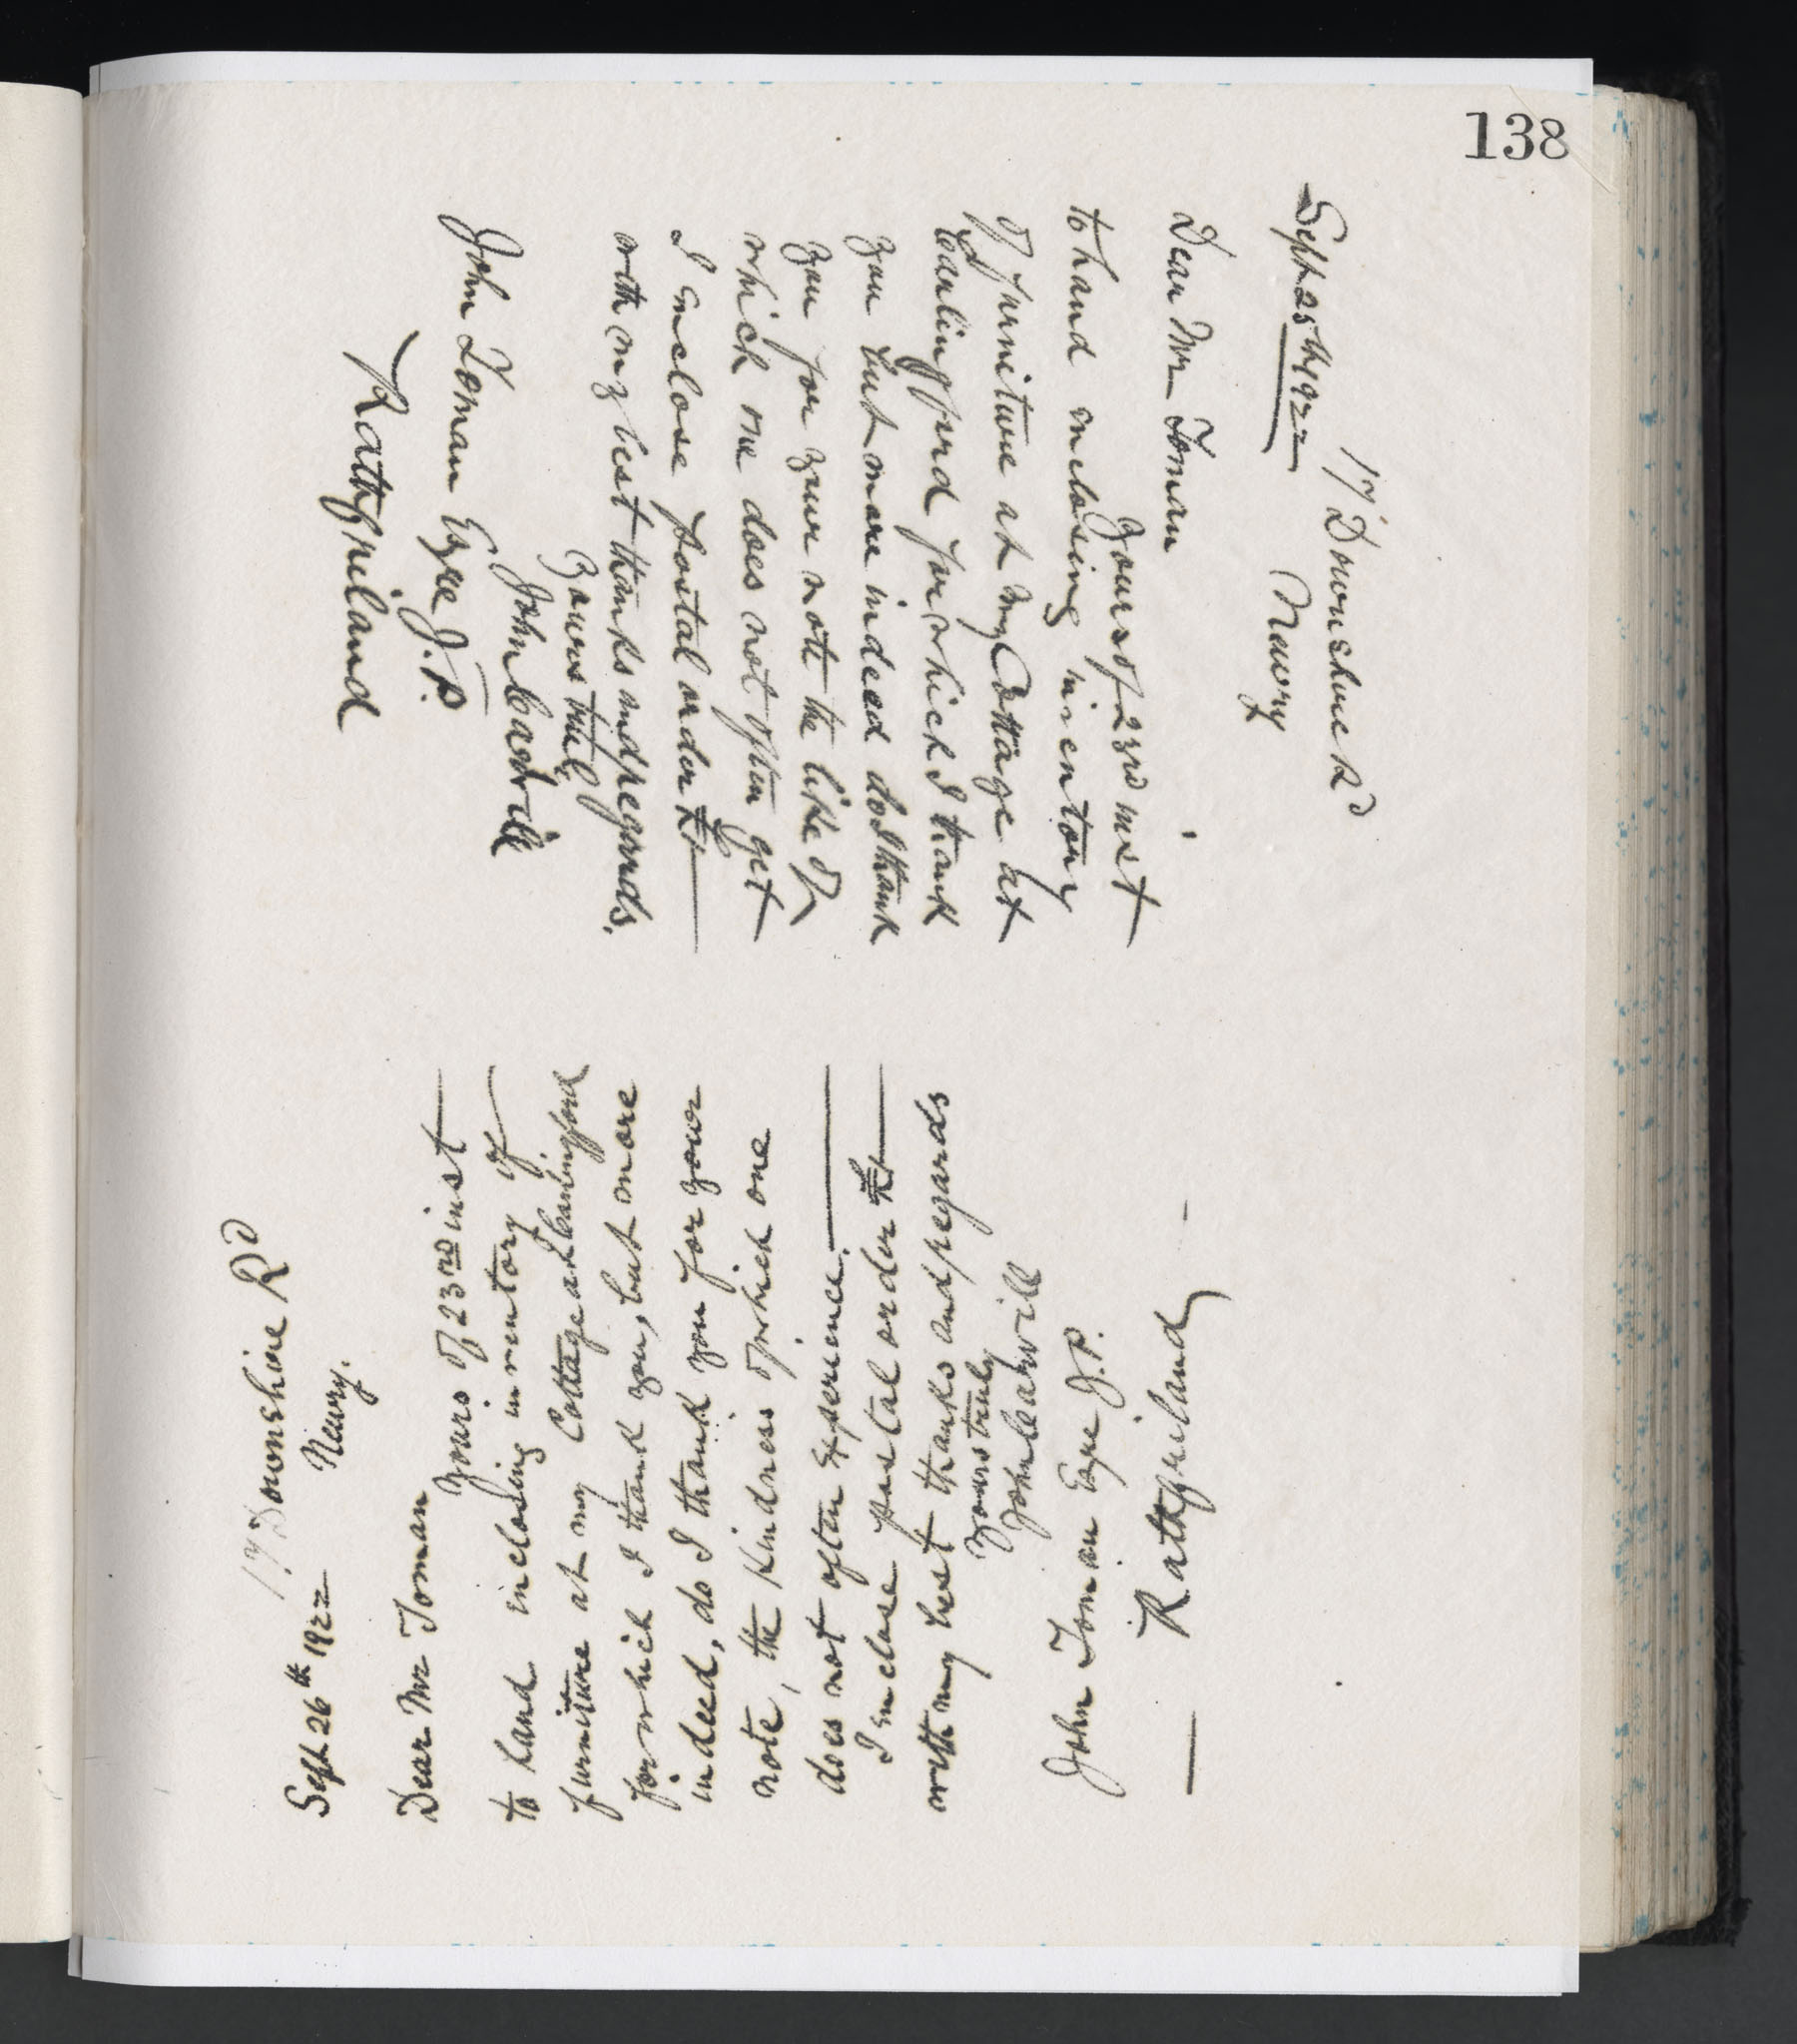 138
17 Downshire Rd
Newry
Sept 25th 1922
Dear Mr Toman
Yours of 23rd inst
to hand inclosing inventory
of furniture at my Cottage at
Carlingford for which I thank
you but more indeed do I thank
you for your note the like of
which one does not often get
I enclose postal order £1
with my best thanks and regards.
Yours truly
John Cartvill
John Toman Esqre J.P.
Rathfriland
17 Downshire Rd
Newry.
Sept 26th 1922
Dear Mr Toman
Yours of 23rd inst
to hand inclosing inventory of
furniture at my Cottage at Carlingford
for which I thank you, but more
indeed, do I thank you for your
note, the kindness of which one
does not often experience.
I enclose postal order £1
with my best thanks and regards
Yours truly
John Cartvill
John Toman Esqre J.P.
Rathfriland